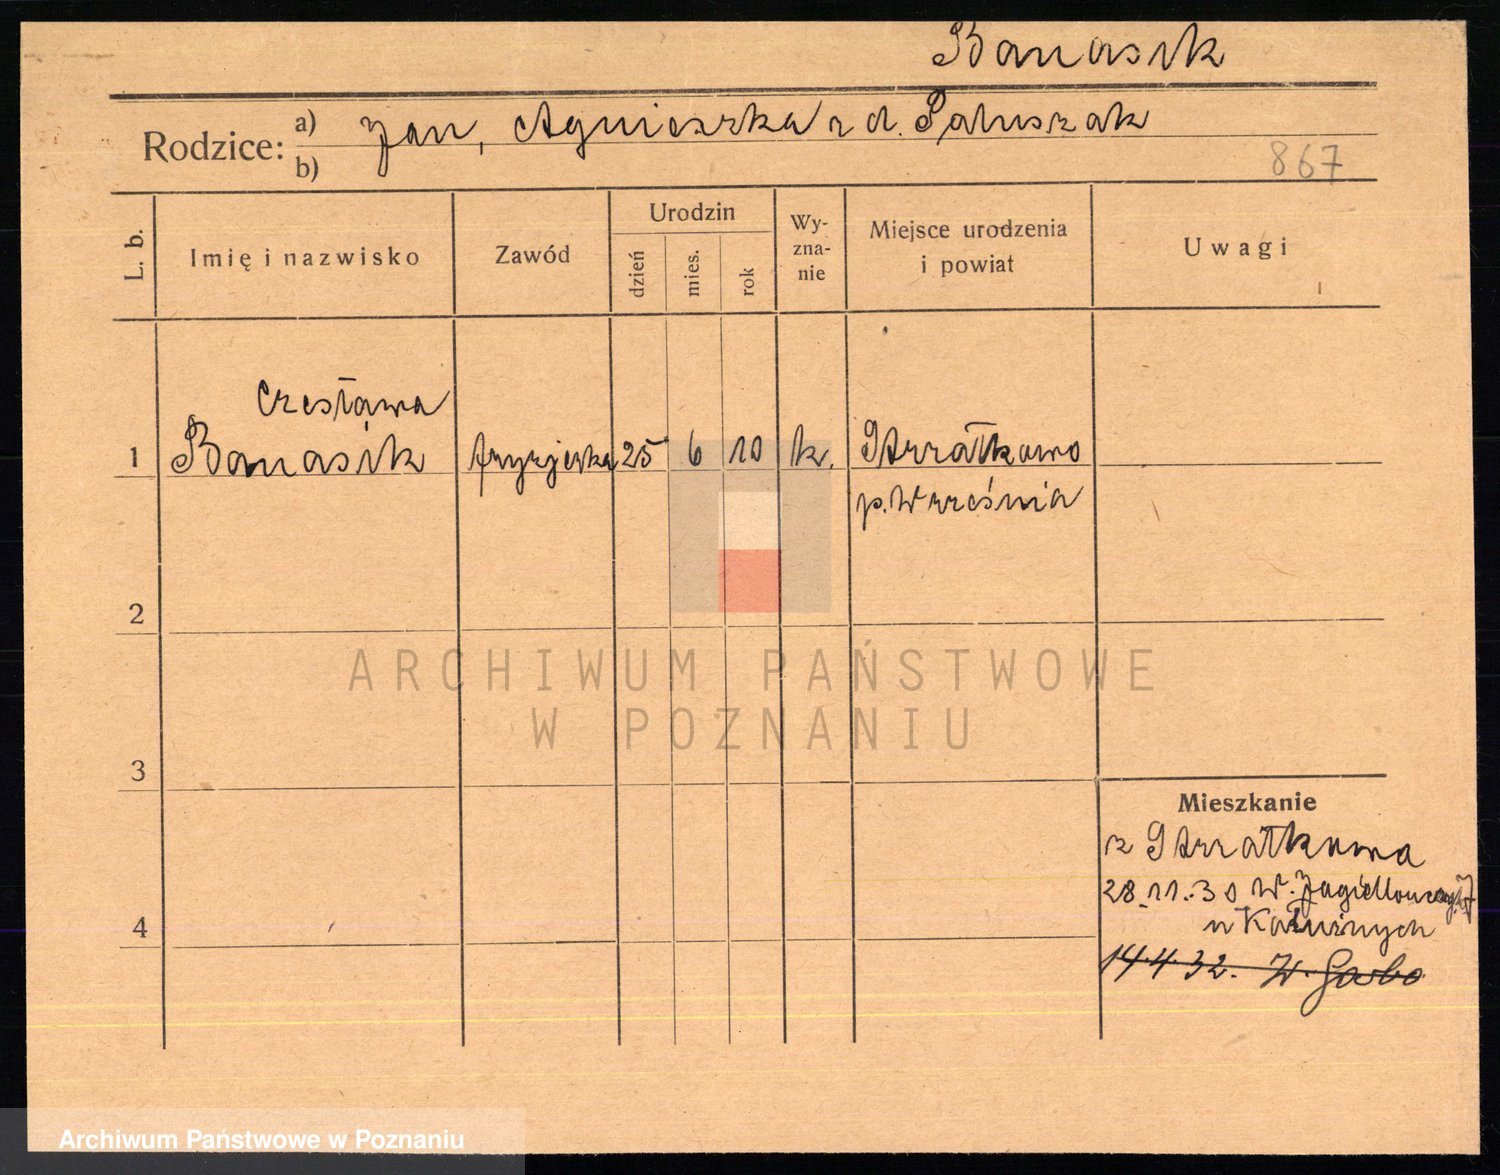 Banasik
Rodzice: a) Jan, Agnieszka z d. Paluszak
b)
867
L. b. Imię i nazwisko Zawód Urodzin dzień mies. rok Wy-zna-nie Miejsce urodzenia i powiat Uwagi
Czesława
1 Banasik fryzjerka 25 6 10 k. Strzałkowo
p. Września
2
ARCHIWUM PAŃSTWOWE
W POZNANIU
3
Mieszkanie
z Strzałkowa
28.11.30 W. Jagiellończyka
4 u Kałużnych
14 4 32. W. Garbo
Archiwum Państwowe w Poznaniu